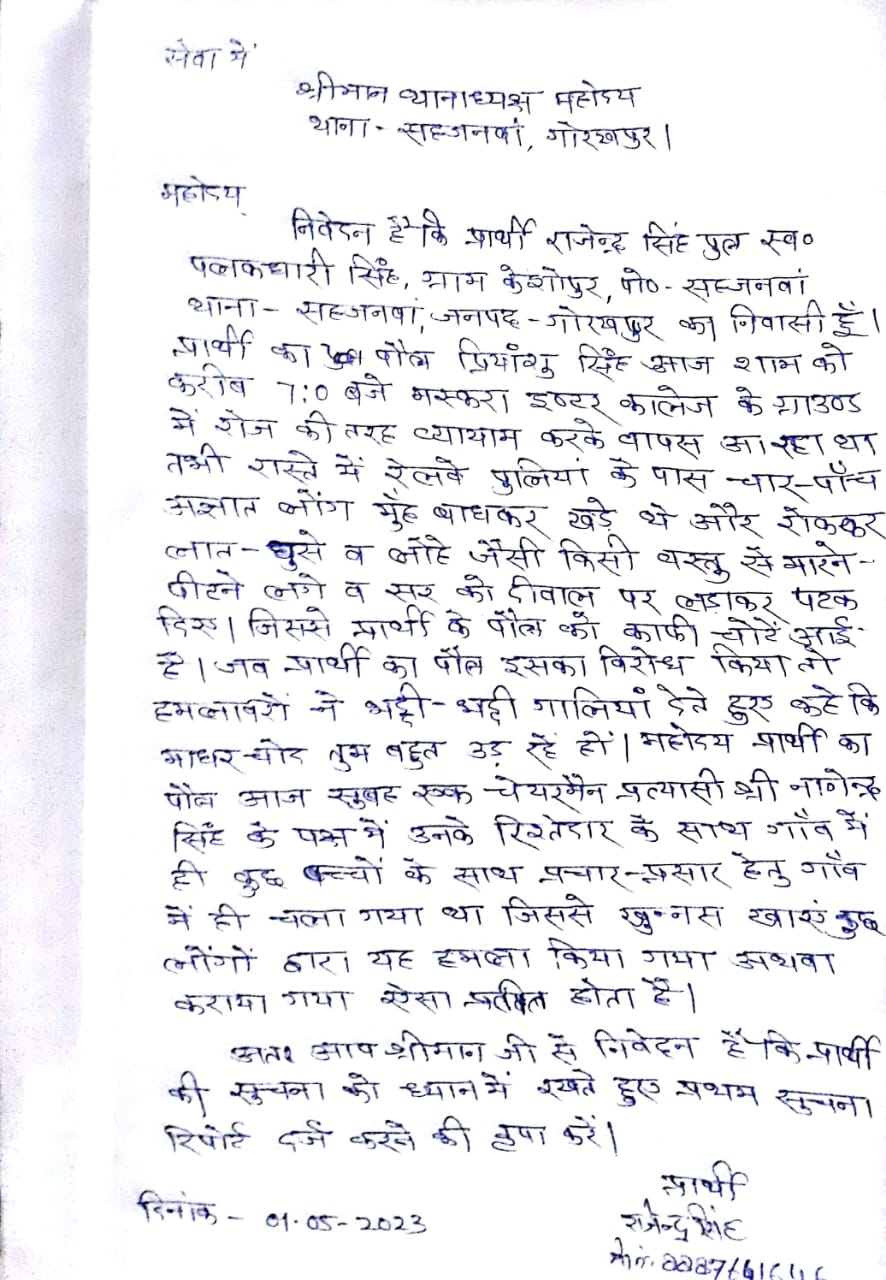 सेवा में
श्रीमान थानाध्यक्ष महोदय
थाना - सहजनवां, गोरखपुर।
महोदय
निवेदन है कि प्रार्थी राजेन्द्र सिंह पुत्र स्व०
पलकधारी सिंह, ग्राम केशोपुर, पो०-सहजनवां
थाना - सहजनवां, जनपद - गोरखपुर का निवासी हूँ।
प्रार्थी का पौत्र प्रियांशु सिंह आज शाम को
करीब 7:0 बजे मस्करा इण्टर कालेज के ग्राउण्ड
में रोज की तरह व्यायाम करके वापस आ रहा था
तभी रास्ते में रेलवे पुलियां के पास चार-पाँच
अज्ञात लोंग मुँह बाधकर खड़े थे और रोककर
लात-घुसे व लोंहे जैसी किसी वस्तु सें मारने-
पीटने लगे व सर को दीवाल पर लड़ाकर पटक
दिए। जिससे प्रार्थी के पौत्र को काफी चोटें आई
है। जब प्रार्थी का पौत्र इसका विरोध किया तो
हमलावरों ने भद्दी-भद्दी गालियां देते हुए कहे कि
माधर-चोद तुम बहुत उड़ रहें हों। महोदय प्रार्थी का
पौत्र आज सुबह एक चेयरमैन प्रत्यासी श्री नागेन्द्र
सिंह के पक्ष में उनके रिश्तेदार के साथ गाँव में
ही कुछ बच्चों के साथ प्रचार-प्रसार हेतु गाँव
में ही चला गया था जिससे खुन्नस खाएं कुछ
लोंगों द्वारा यह हमला किया गया अथवा
कराया गया ऐसा प्रतीत होता है।
अतः आप श्रीमान जी सें निवेदन है कि प्रार्थी
की सुचना को ध्यान में रखते हुए प्रथम सुचना
रिपोर्ट दर्ज करने की कृपा करें।
प्रार्थी
राजेन्द्र सिंह
दिनांक - 01-05-2023
मो०नं.